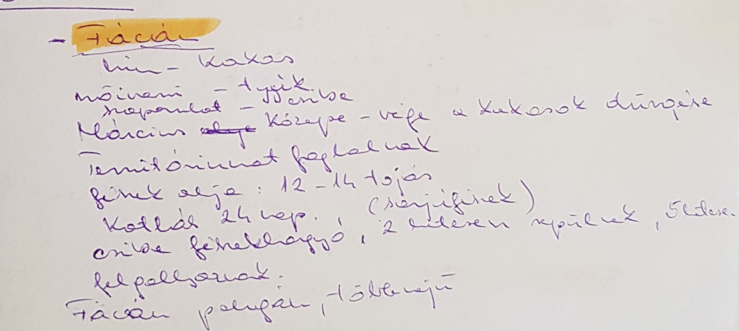 - Fácán
hím - kakas
nőivarú - tyúk
szaporulat - csibe
Március eleje közepe - vége a kakasok dürgése
Territóriumot foglalnak
fészek alja: 12-14 tojás
Kotlás 24 nap. (sarjúfészek)
csibe fészekhagyó, 2 hetesen repülnek, 5 hetesen
felgallyaznak.
Fácán poligám, többnejű